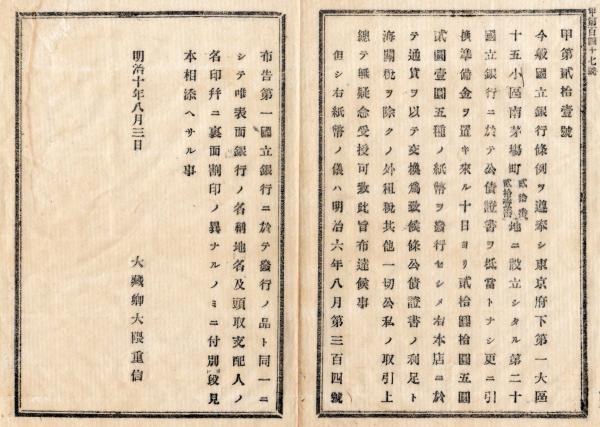 甲第百四十七號
甲第貳拾壹號
今般國立銀行條例ヲ遵奉シ東京府下第一大區
十五小區南茅場町貳拾番貳拾壹番地ニ設立シタル第二十
國立銀行ニ於テ公債證書ヲ抵當トナシ更ニ引
換準備金ヲ置キ來ル十日ヨリ貳拾圓拾圓五圓
貳圓壹圓五種ノ紙幣ヲ發行セシメ右本店ニ於
テ通貨ヲ以テ交換爲致候條公債證書ノ利足ト
海關稅ヲ除クノ外租稅其他一切公私ノ取引上
總テ無疑念受授可致此旨布達候事
但シ右紙幣ノ儀ハ明治六年八月第三百四號
布告第一國立銀行ニ於テ發行ノ品ト同一ニ
シテ唯表面銀行ノ名稱地名及頭取支配人ノ
名印幷ニ裏面割印ノ異ナルノミニ付別段見
本相添ヘサル事
明治十年八月三日
大藏卿大隈重信